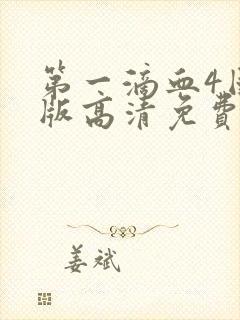 第一滴血4
版高清免费
姜斌